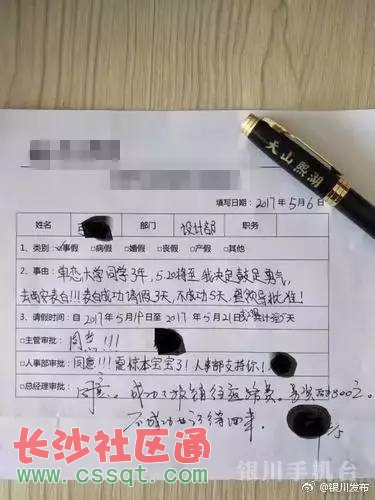 天山熙湖
填写日期：2017年5月6日
姓名 部门 设计部 职务
1、类别：☑事假 □病假 □婚假 □丧假 □产假 □其他
2、事由：单恋大学同学3年，5.20将至，我决定鼓足勇气，
去西安表白!!!表白成功请假3天，不成功5天，望领导批准！
3、请假时间：自2017年5月17日至2017年5月21日 共计 5天
□主管审批：同意!!!
□人事部审批：同意!!!震惊本宝宝了！人事部支持你！
□总经理审批：同意。成功了报销往返路费。
不成功也记得回来。
长沙社区通
www.cssqt.com
银川手机台
@银川发布